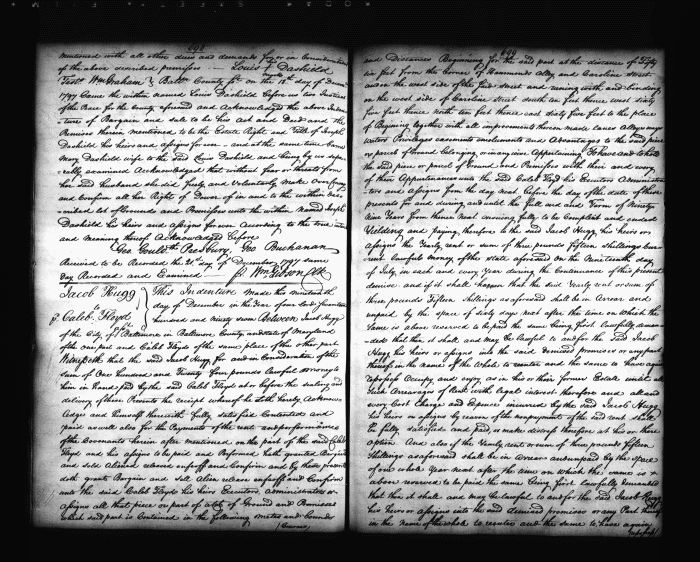 698
mentioned with all other dues and demands for or in Consideration
of the above described premises — Louis Dashield
Test. Wm Graham & Baltre County Sct. on the 18th day of Decem
1797 Came the within named Louis Dashield before us two Justices
of the Peace for the County aforesaid and Acknowledged the above Inden
ture of Bargain and Sale to be his Act and Deed and the
Premises therein mentioned to be the Estate Right and Title of Joseph
Dashield his heirs and assigns forever — and at the same time came
Mary Dashield wife to the said Louis Dashield and being by us sepe
rately examined Acknowledged that without fear or threats from
her said husband she did freely and Voluntarily make Over Convey
and Confirm all her Right of Dower of in and to the within des
cribed lot of Grounds and Premises unto the within Named Joseph
Dashield his heirs and assigns for ever According to the true intent
and meaning thereof Acknowledged before
Geo Gouldsth Presbury Geo Buchanan
Received to be Recorded the 21st day of December 1797 same
day Recorded and Examined Wm Gibson Clk
Jacob Hugg
to
Caleb Floyd
This Indenture Made this nineteenth
day of December in the Year of our Lord seventeen
hundred and ninety seven Between Jacob Hugg
of the City of Baltimore in Baltimore County and State of Maryland
of the one part and Caleb Floyd of the same place of the other part
Witnesseth that the said Jacob Hugg for and in Consideration of the
sum of One hundred and Twenty four pounds Current money to
him in hand paid by the said Caleb Floyd at or before the sealing and
delivery of these Presents the receipt whereof he doth hereby Acknow
ledge and himself therewith fully satisfied Contented and
paid as well also for the Payments of the rent and performances
of the Covenants herein after mentioned on the part of the said Caleb
Floyd and his assigns to be paid and Performed hath granted Bargained
and sold Aliened released enfeoff and Confirm and by these presents
doth grant Bargain and Sell Alien release enfeoff and Confirm
unto the said Caleb Floyd his heirs Executors administrators or
assigns all that piece or part of a lot of Ground and Premises
which said part is Contained in the following metes and bounds
699
and Distances Beginning for the said part at the distance of Fifty
six feet from the Corner of Hammonds Alley and Caroline Street
and on the west side of the said street and runing with and binding
on the west side of Caroline Street south ten feet thence west sixty
five feet thence North ten feet thence east sixty five feet to the place
of Begining together with all improvements thereon made lanes Alleys ways
waters Privileges easements emoluments and Advantages to the said piece
or parcel of Ground belonging or in anywise Appertaining To have and to hold
the said piece or parcel of Ground and Premises with their and every
of their Appurtenances unto the said Caleb Floyd his Executors Administra
tors and Assigns from the day next before the day of the date of these
presents for and during and until the full end and Term of Ninety
Nine Years from thence next ensuing fully to be Compleat and ended
Yielding and paying therefor to the said Jacob Hugg his heirs or
assigns the Yearly rent or sum of three pounds fifteen Shillings Cur
rent lawful money of the state aforesaid on the Nineteenth day
of July in each and every Year during the Continuance of this present
demise and if it shall happen that the said Yearly rent or sum of
three pounds Fifteen Shillings as aforesaid shall be in Arrear and
unpaid by the space of sixty days next after the time on which the
same is above reserved to be paid the same being first lawfully deman
ded that then it shall and may be lawful to and for the said Jacob
Hugg his heirs or assigns into the said demised premises or any part
thereof in the name of the whole to reenter and the same to have again
repossess Occupy and enjoy as in his or their former Estate until all
such Arrearages of Rent with legal interest therefore and all and
every Cost Charge and Expence incurred by the said Jacob Hugg
his heirs or assigns by reason of the nonpayment of the said rent shall
be fully satisfied and paid or make distress therefore at his or their
option And also if the Yearly rent or sum of three pounds Fifteen
Shillings as aforesaid shall be in Arrear and unpaid by the space
of one whole Year next after the time on which the same is
above reserved to be paid the same being first lawfully demanded
that then it shall and may be lawful to and for the said Jacob Hugg
his heirs or assigns into the said demised premises or any Part thereof
in the name of the whole to reenter and the same to have again
repossess